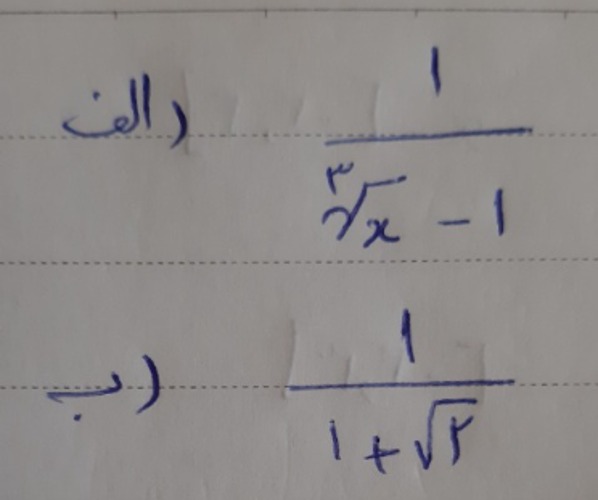 الف) ۱ / (³√x - ۱)
ب) ۱ / (۱ + √۲)